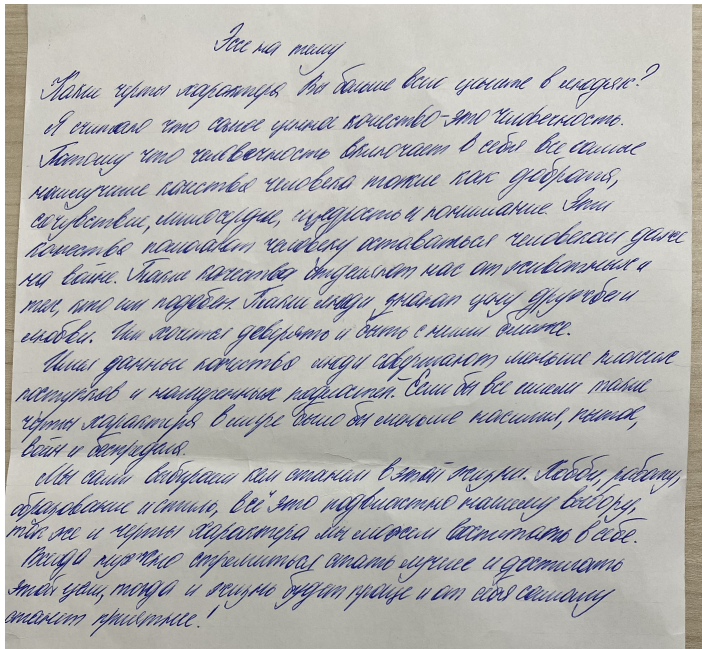 Эссе на тему
Какие черты характера Вы больше всего цените в людях?
Я считаю что самое ценное качество - это человечность.
Потому что человечность включает в себя все самые
наилучшие качества человека такие как доброта,
сочувствие, милосердие, щедрость и понимание. Эти
качества помогают человеку оставаться человеком даже
на войне. Такие качества отделяют нас от животных и
тех, кто им подобен. Такие люди знают цену дружбе и
любви. Им хочется доверять и быть с ними ближе.
Имея данные качества люди совершают меньше плохих
поступков и намеренных подлостей. Если бы все имели такие
черты характера в мире было бы меньше насилия, пыток,
войн и беспредела.
Мы сами выбираем кем станем в этой жизни. Хобби, работу,
образование и стиль, всё это подвластно нашему выбору,
так же и черты характера мы можем воспитать в себе.
Всегда нужно стремиться стать лучше и достигать
этой цели, тогда и жизнь будет проще и от себя самому
станет приятнее!